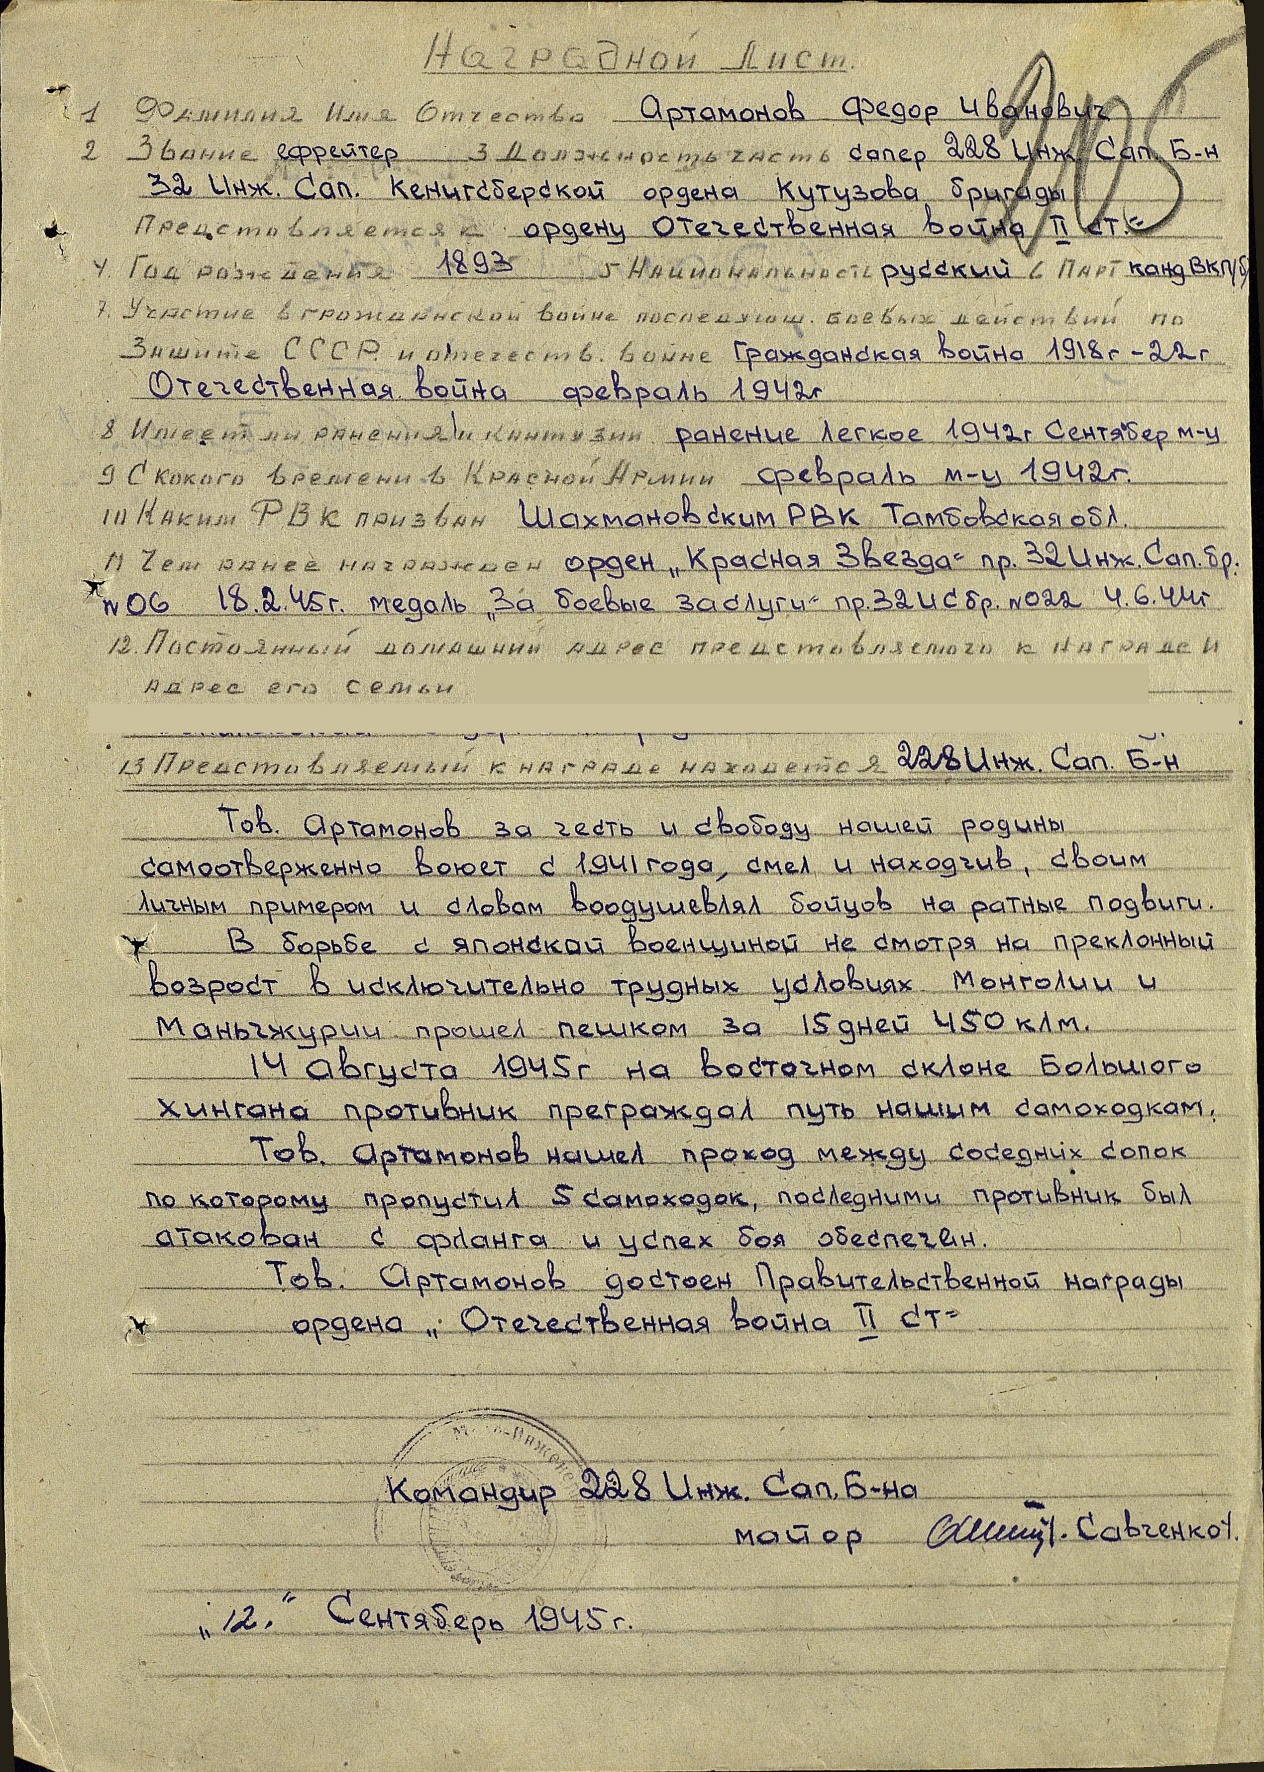 Наградной Лист.
205
1 Фамилия Имя Отчество Артамонов Федор Иванович
2 Звание ефрейтер 3 Должность часть сапер 228 Инж. Сап. Б-н
32 Инж. Сап. Кенигсберской ордена Кутузова бригады
Представляется к ордену Отечественная война II ст.
4. Год рождения 1893 5 Национальность русский 6 Парт канд ВКП/б/
7. Участие в гражданской войне последующ. боевых действий по
Защите СССР и отечеств. войне Гражданская война 1918г-22г
Отечественная война февраль 1942г
8 Имеет ли ранения и контузии ранение легкое 1942г Сентябер м-ц
9 С какого времени в Красной Армии февраль м-ц 1942г.
10 Каким РВК призван Шахмановским РВК Тамбовская обл.
11 Чем ранее награжден орден „Красная Звезда" пр. 32 Инж. Сап. бр.
№06 18.2.45г. медаль „За боевые заслуги" пр. 32 ИС бр. №022 4.6.44г
12. Постоянный домашний адрес представляемого к награде и
адрес его семьи
13 Представляемый к награде находется 228 Инж. Сап. Б-н
Тов. Артамонов за честь и свободу нашей родины
самоотверженно воюет с 1941 года, смел и находчив, своим
личным примером и словам воодушевлял бойцов на ратные подвиги.
В борьбе с японской военщиной не смотря на преклонный
возраст в исключительно трудных условиях Монголии и
Маньчжурии прошел пешком за 15 дней 450 клм.
14 августа 1945г на восточном склоне Большого
Хингана противник преграждал путь нашим самоходкам.
Тов. Артамонов нашел проход между соседних сопок
по которому пропустил 5 самоходок, последними противник был
атакован с фланга и успех боя обеспечен.
Тов. Артамонов достоен Правительственной награды
ордена „Отечественная война II ст"
Командир 228 Инж. Сап. Б-на
майор Савченко/.
„12." Сентяберь 1945г.